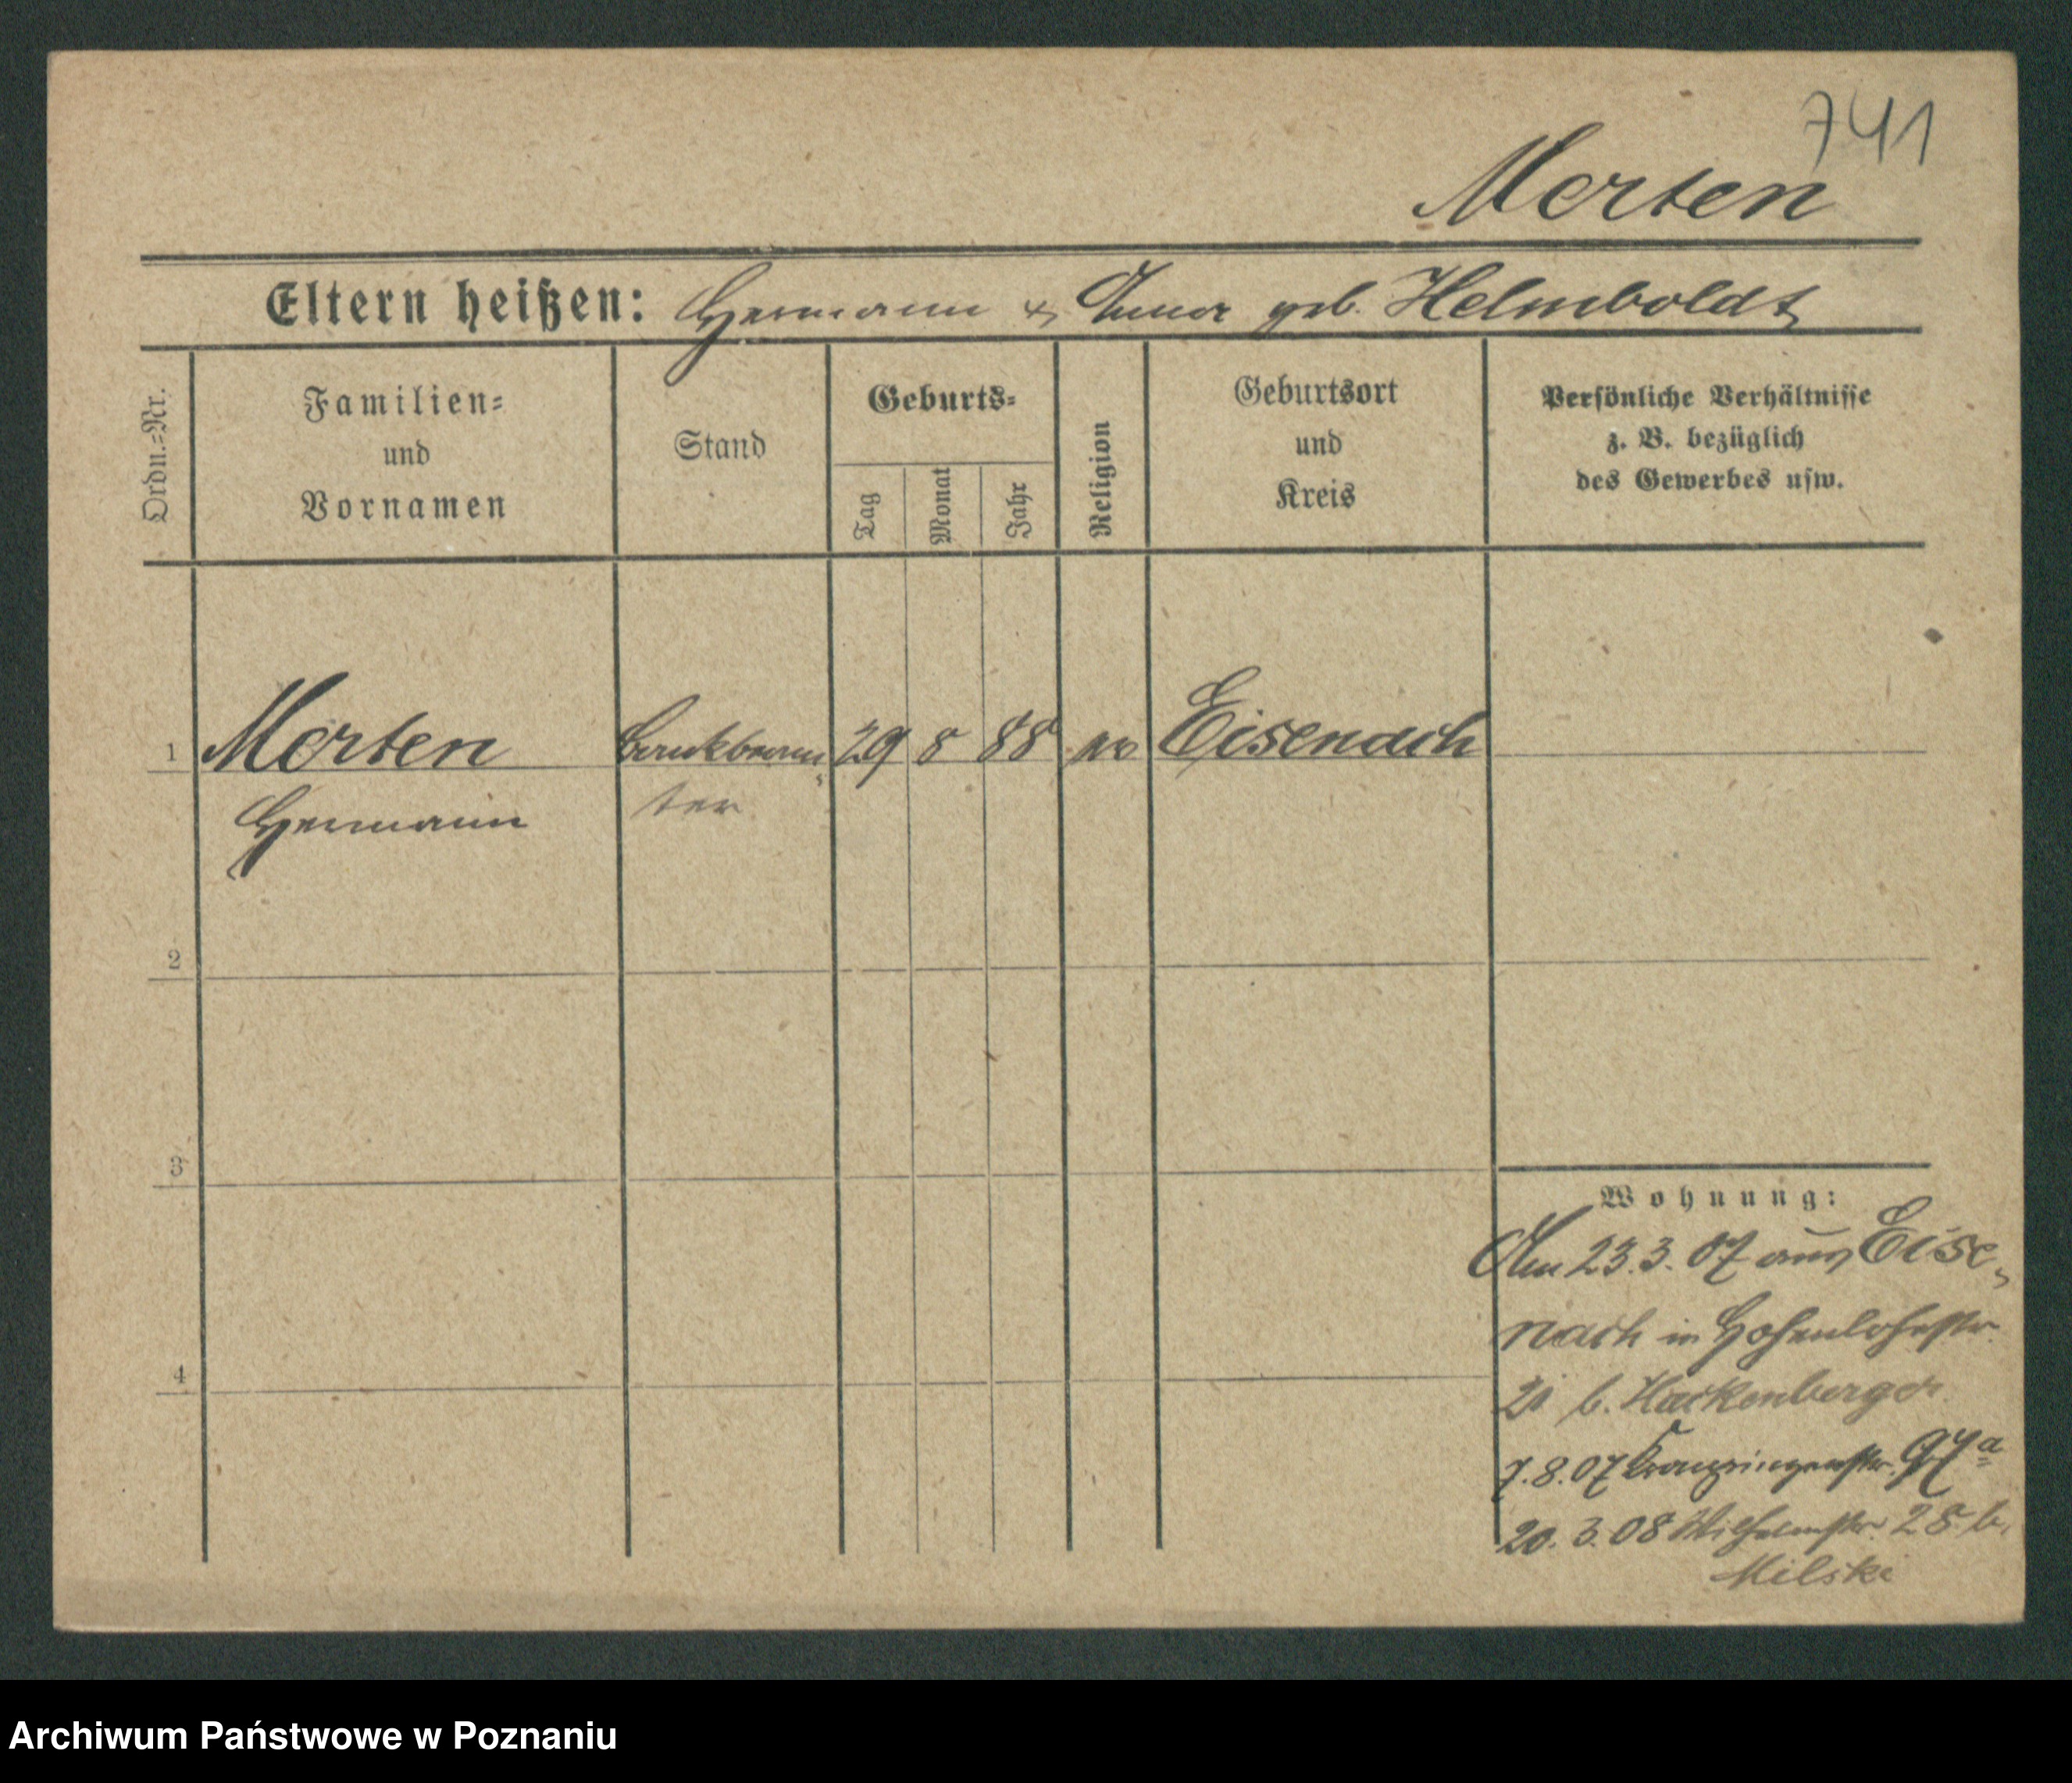 741
Merten
Eltern heißen: Hermann & Anna geb. Helmboldt
Ordn.=Nr.
Familien=
und
Vornamen
Stand
Geburts=
Tag
Monat
Jahr
Religion
Geburtsort
und
Kreis
Persönliche Verhältnisse
z. B. bezüglich
des Gewerbes usw.
1 Merten Bankbeam 29 8 88 Eisenach
Hermann ter
2
3
4
Wohnung:
Am 23.3.07 aus Eise
nach in Hohenlohestr.
21 b. Hackenberger
7.8.07
20.3.08 Wilhelmstr. 25 b.
Milski
Archiwum Państwowe w Poznaniu